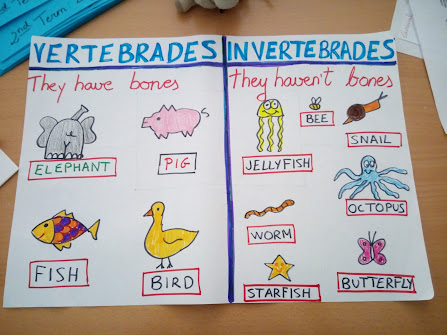 2nd Term
VERTEBRADES
They have bones
ELEPHANT
PIG
FISH
BIRD
INVERTEBRADES
they haven't bones
JELLYFISH
BEE
SNAIL
OCTOPUS
WORM
STARFISH
BUTTERFLY